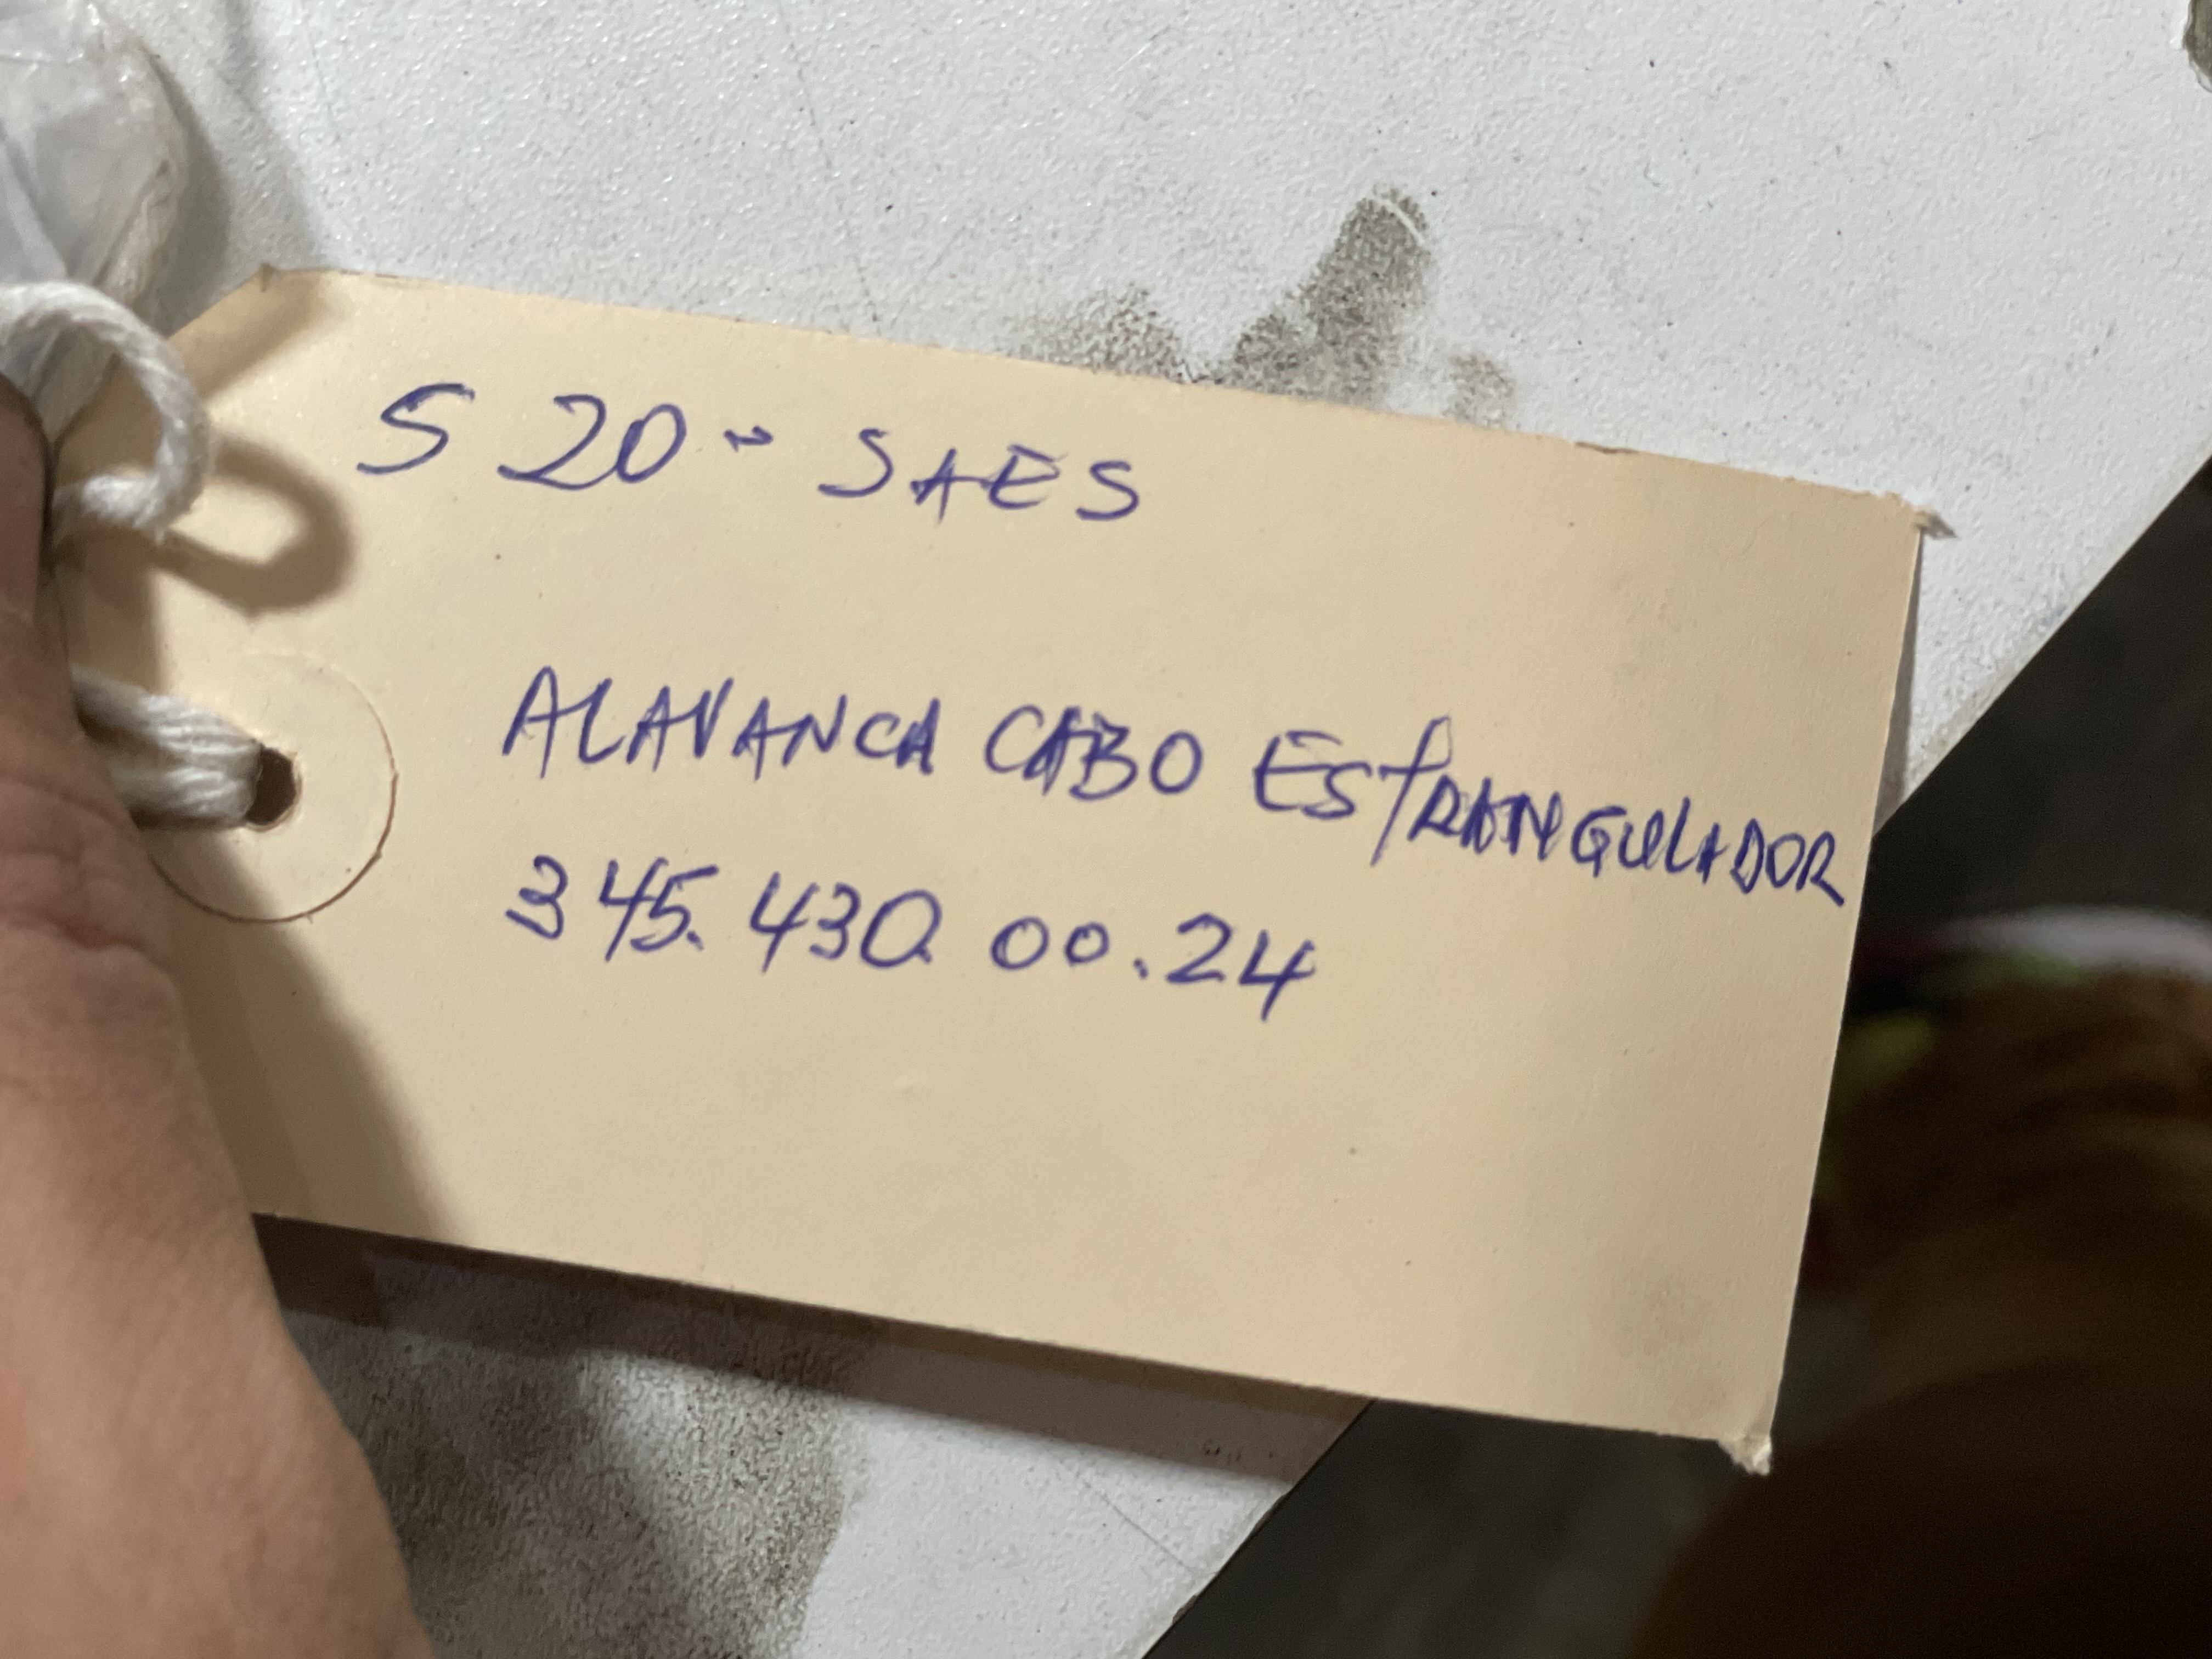 S 20 - SAES
ALAVANCA CABO ESTRANGULADOR
345.430 00.24